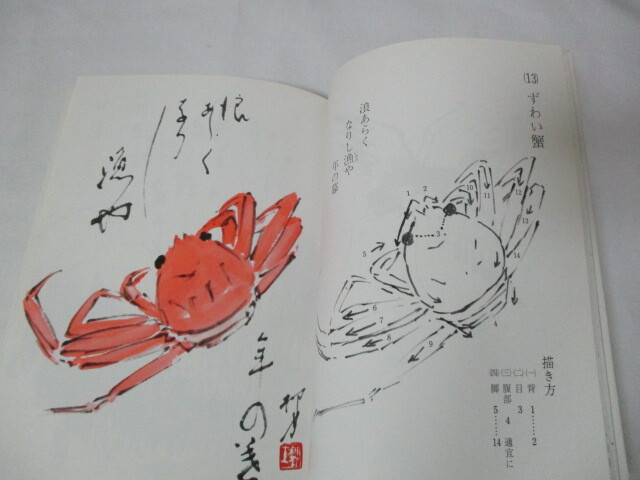 (13) ずわい蟹
浪あらく
なりし漁や
年の暮
描き方
(一) 背 1……2
(二) 目 3
(三) 腹部 4 適宜に
(四) 脚 5……14
1
2
3
4
5
6
7
8
9
10
11
12
13
14
浪
あらく
なりし
漁や
年
の暮